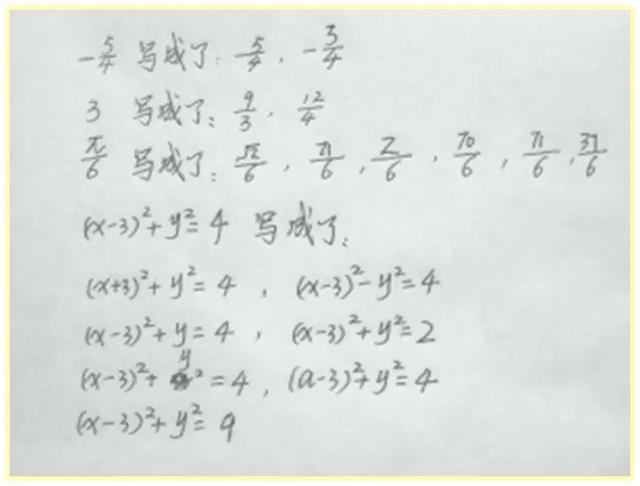 -5/4 写成了: -5/4, -3/4
3 写成了: 9/3, 12/4
π/6 写成了: √π/6, 71/6, Z/6, 70/6, 71/6, 37/6
(x-3)²+y²=4 写成了:
(x+3)²+y²=4, (x-3)²-y²=4
(x-3)²+y=4, (x-3)²+y²=2
(x-3)²+y²=4, (a-3)²+y²=4
(x-3)²+y²=9